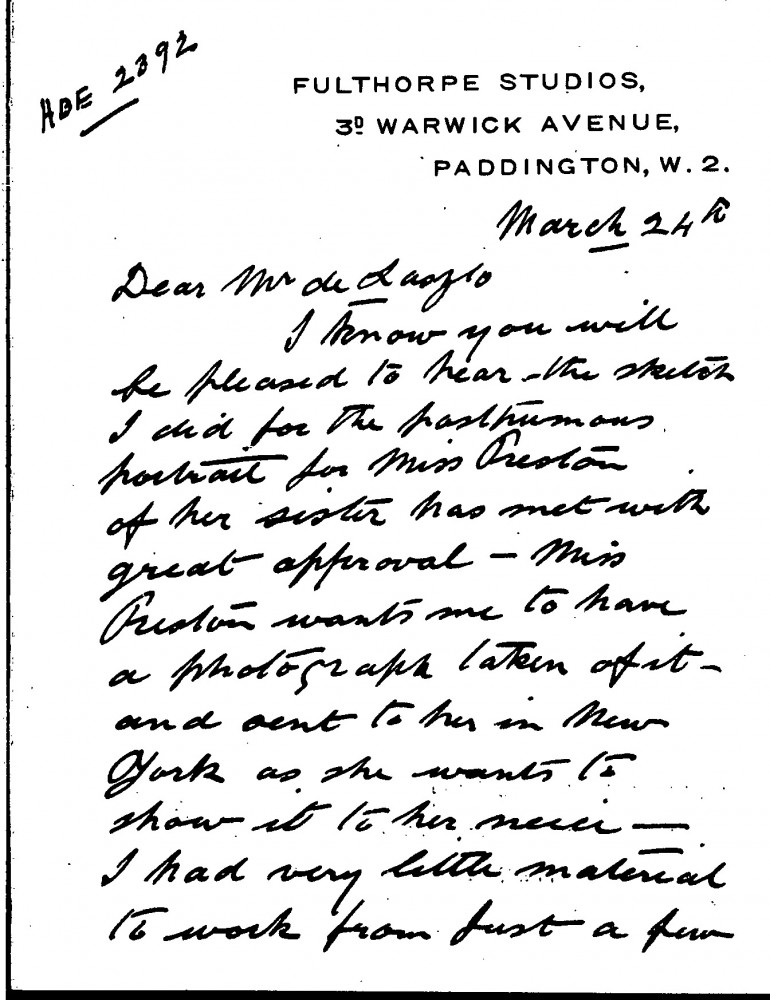 HDE 2392
FULTHORPE STUDIOS,
3D WARWICK AVENUE,
PADDINGTON, W. 2.
March 24th
Dear Mr de Laszlo
I know you will
be pleased to hear the sketch
I did for the posthumous
portrait for Miss Preston
of her sister has met with
great approval — Miss
Preston wants me to have
a photograph taken of it –
and sent to her in New
York as she wants to
show it to her neice —
I had very little material
to work from Just a few